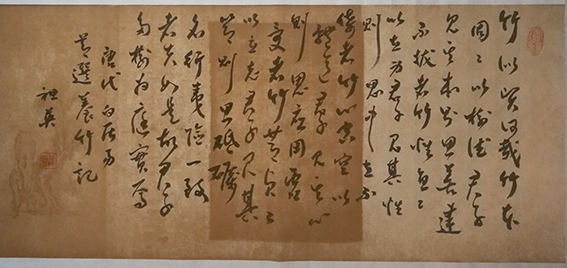 竹似賢何哉竹本
固々以樹德君子
見其本則思善建
不拔者竹性直々
以立身君子見其性
則思中立不
倚者竹心空空以
體道君子見其心
則思應用虛
受者竹节貞々
以立志君子見其
節則思砥礪
名行夷險一致
者夫如是故君子
多樹为庭實焉
唐代白居易
节選養竹記
祖英